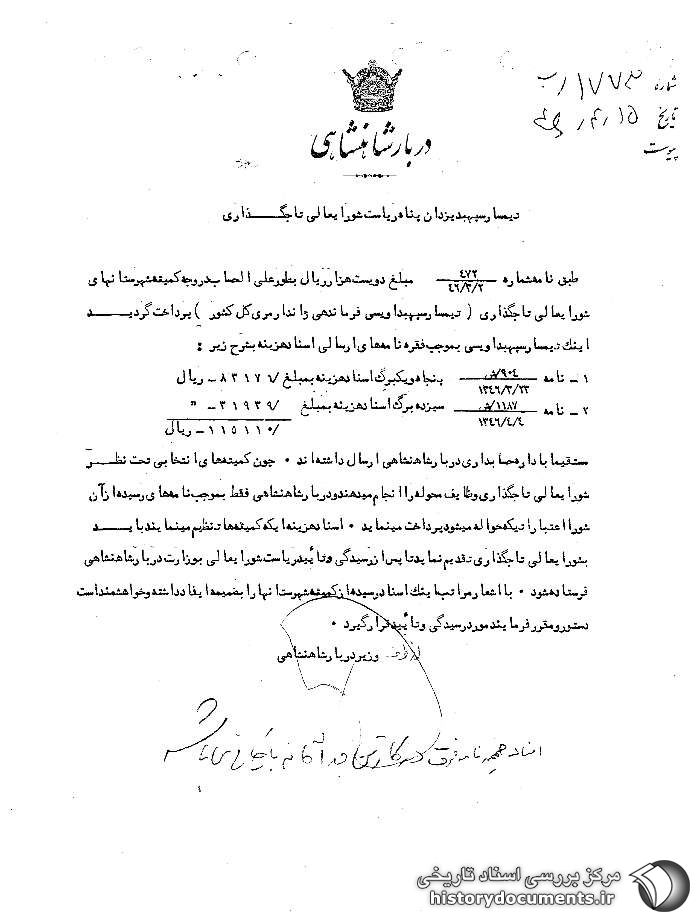 شماره ۱۷۷۳/ب
تاریخ ۱۵/۴/
پیوست
دربار شاهنشاهی
تیمسار سپهبد یزدان پناه ریاست شورایعالی تاجگذاری
طبق نامه شماره ۴۷۲ - ۴۶/۳/۲ مبلغ دویست هزار ریال بطور علی الحساب در وجه کمیته شهرستانهای
شورایعالی تاجگذاری ( تیمسار سپهبد اویسی فرماندهی ژاندارمری کل کشور ) پرداخت گردید
اینك تیمسار سپهبد اویسی بموجب فقره نامه های ارسالی اسناد هزینه بشرح زیر :
۱ - نامه ۹۰۴/ - ۱۳۴۶/۳/۲۳ پنجاه ویکبرگ اسناد هزینه بمبلغ /۸۳۱۷۱ - ریال
۲ - نامه ۱۱۸۷/ - ۱۳۴۶/۴/۴ سیزده برگ اسناد هزینه بمبلغ /۳۱۹۳۹ - "
/۱۱۵۱۱۰ - ریال
مستقیما باداره حسابداری دربار شاهنشاهی ارسال داشته اند ۰ چون کمیته های انتخابی تحت نظر
شورایعالی تاجگذاری وظایف محوله را انجام میدهند و دربار شاهنشاهی فقط بموجب نامه های رسیده از آن
شورا اعتباراتیکه حواله میشود پرداخت مینماید ۰ اسناد هزینه ایکه کمیته ها تنظیم مینمایند باید
بشورایعالی تاجگذاری تقدیم نمایند تا پس از رسیدگی و تأیید ریاست شورایعالی بوزارت دربار شاهنشاهی
فرستاده شود ۰ با اشعار مراتب اینك اسناد رسیده از کمیته شهرستانها را بضمیمه ایفاد داشته و خواهشمند است
دستور و مقرر فرمایند مورد رسیدگی و تأیید قرار گیرد ۰
از طرف وزیر دربار شاهنشاهی
اسناد ضمیمه نامه فوق
مرکز بررسی اسناد تاریخی
historydocuments.ir